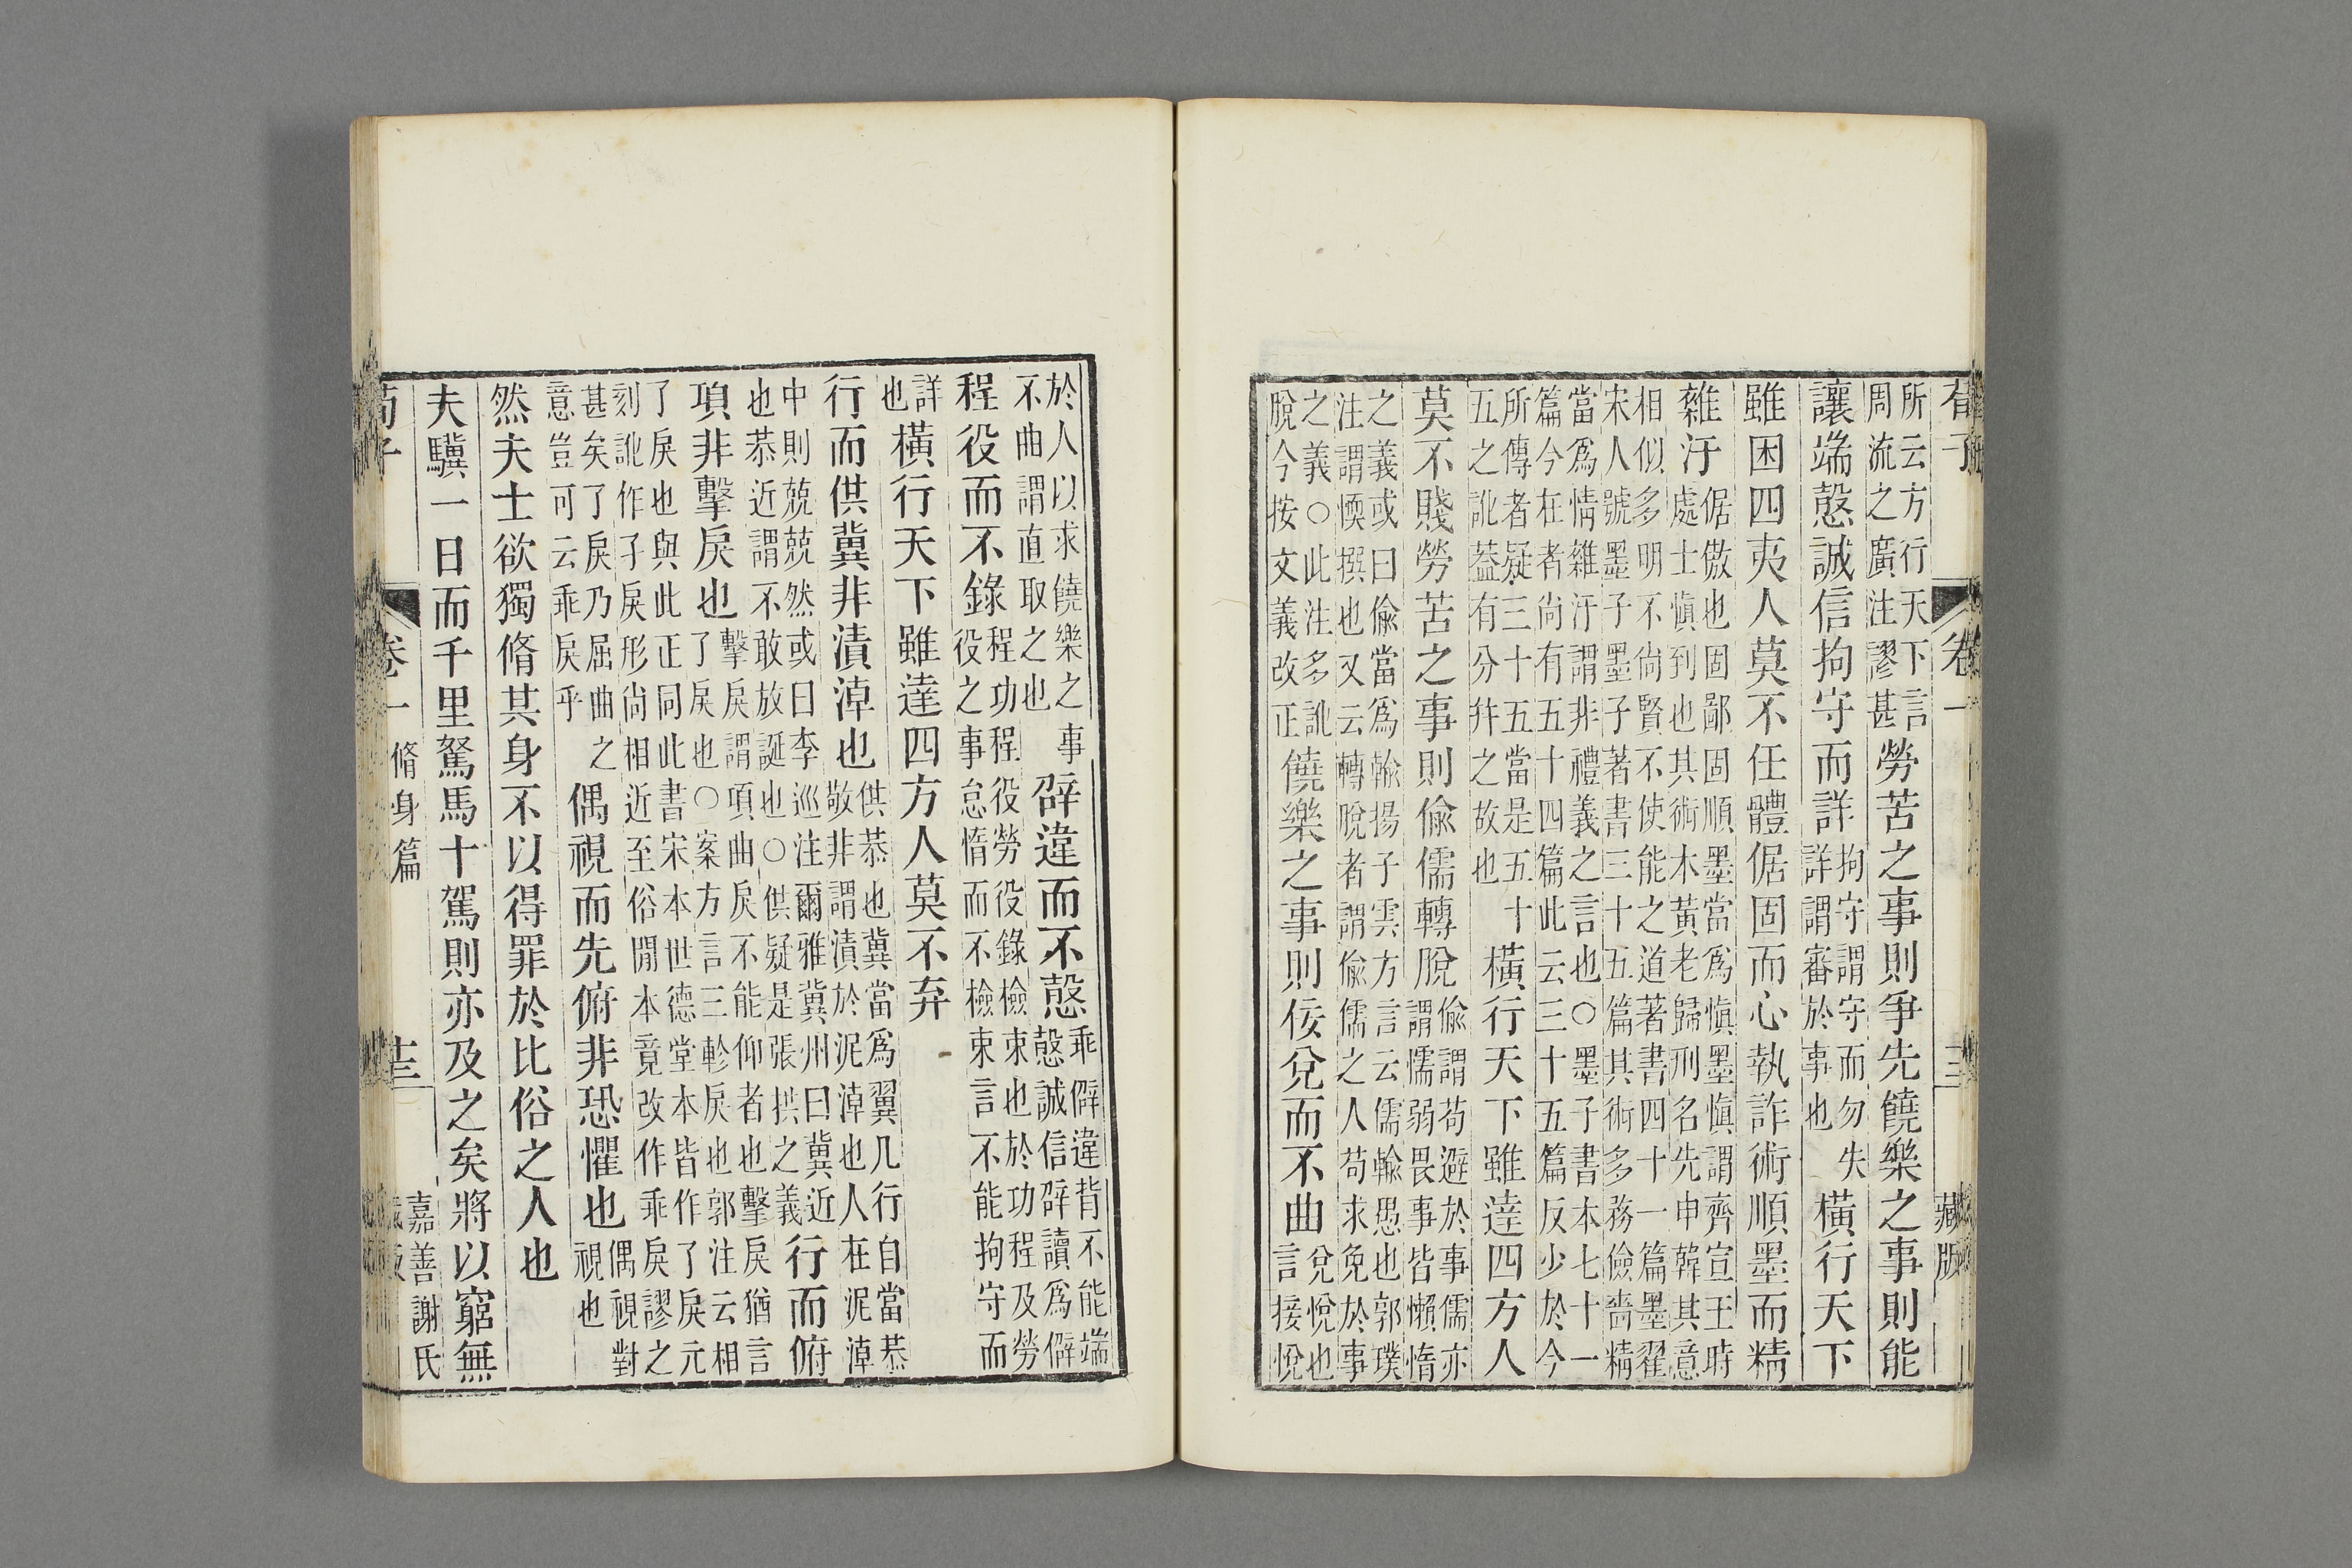 荀子 卷一 藏版
所云方行天下言
周流之廣注謬甚
勞苦之事則爭先饒樂之事則能
讓端愨誠信拘守而詳
拘守謂守而勿失
詳謂審於事也
橫行天下
雖困四夷人莫不任體倨固而心執詐術順墨而精
雜汙
倨傲也固鄙固順墨當爲愼墨愼謂齊宣王時
處士愼到也其術本黃老歸刑名先申韓其意
相似多明不尙賢不使能之道著書四十一篇墨翟
宋人號墨子墨子著書三十五篇其術多務儉嗇精
當爲情雜汙謂非禮義之言也○墨子書本七十一
篇今在者尙有五十四篇此云三十五篇反少於今
所傳者疑三十五當是五十
五之訛葢有分幷之故也
橫行天下雖達四方人
莫不賤勞苦之事則偸儒轉脫
偸謂苟避於事儒亦
謂懦弱畏事皆懶惰
之義或曰偸當爲輸揚子雲方言云儒輸愚也郭璞
注謂愞撰也又云轉脫者謂偸儒之人苟求免於事
之義○此注多訛
脫今按文義改正
饒樂之事則佞兌而不曲
兌悅也
言接悅
於人以求饒樂之事
不曲謂直取之也
辟違而不愨
乖僻違背不能端
愨誠信辟讀爲僻
程役而不錄
程功程役勞役錄檢束也於功程及勞
役之事怠惰而不檢束言不能拘守而
詳
也
橫行天下雖達四方人莫不弃
行而供冀非漬淖也
供恭也冀當爲翼凡行自當恭
敬非謂漬於泥淖也人在泥淖
中則兢兢然或曰李巡注爾雅冀州曰冀近
也恭近謂不敢放誕也○供疑是張拱之義
行而俯
項非擊戾也
擊戾謂項曲戾不能仰者也擊戾猶言
了戾也○案方言三軫戾也郭注云相
了戾也與此正同此書宋本世德堂本皆作了戾元
刻訛作孑戾形尙相近至俗閒本竟改作乖戾謬之
甚矣了戾乃屈曲之
意豈可云乖戾乎
偶視而先俯非恐懼也
偶視對
視也
然夫士欲獨脩其身不以得罪於比俗之人也
夫驥一日而千里駑馬十駕則亦及之矣將以窮無
荀子 卷一 脩身篇 十三 嘉善謝氏